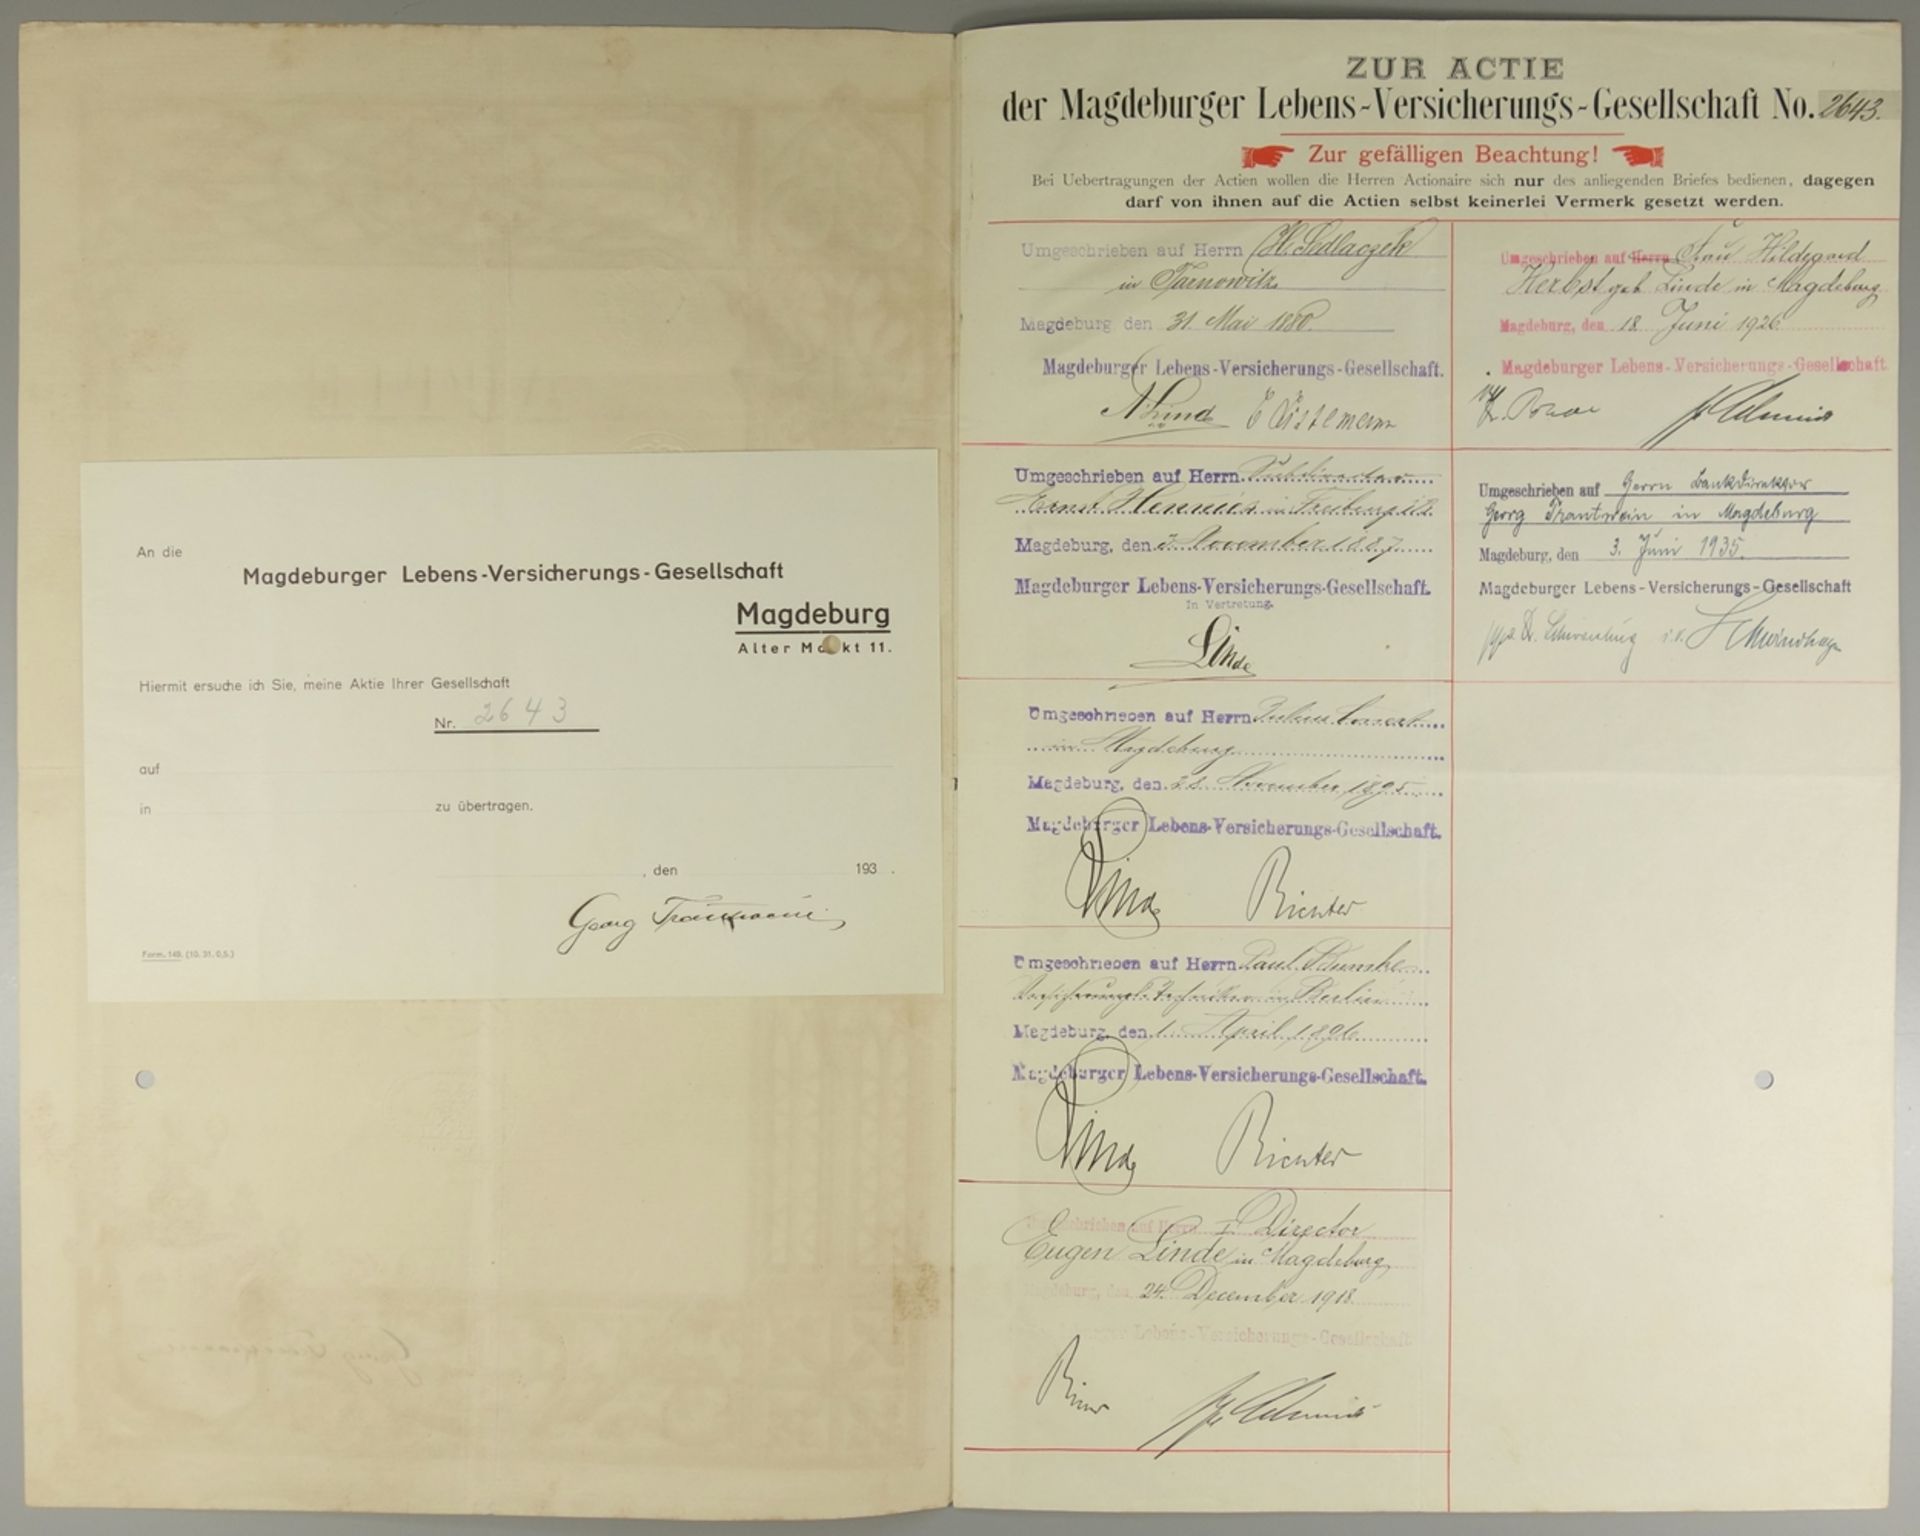 An die
Magdeburger Lebens-Versicherungs-Gesellschaft
Magdeburg
Alter Markt 11.
Hiermit ersuche ich Sie, meine Aktie Ihrer Gesellschaft
Nr. 2643
auf
in zu übertragen.
, den 193 .
Georg
Form. 149. (10. 31. 0,5.)
ZUR ACTIE
der Magdeburger Lebens-Versicherungs-Gesellschaft No. 2643.
Zur gefälligen Beachtung!
Bei Uebertragungen der Actien wollen die Herren Actionaire sich nur des anliegenden Briefes bedienen, dagegen
darf von ihnen auf die Actien selbst keinerlei Vermerk gesetzt werden.
Umgeschrieben auf Herrn H. Sedlaczek
in Tarnowitz
Magdeburg den 31. Mai 1880.
Magdeburger Lebens-Versicherungs-Gesellschaft.
Umgeschrieben auf Herrn Subdirector
Ernst Hennies in Freiburg i/B.
Magdeburg, den November 1887
Magdeburger Lebens-Versicherungs-Gesellschaft.
In Vertretung.
Linde
Umgeschrieben auf Herrn Julius
in Magdeburg
Magdeburg, den November 1895
Magdeburger Lebens-Versicherungs-Gesellschaft.
Linde Richter
Umgeschrieben auf Herrn Paul
in Berlin
Magdeburg, den 1. April 1896
Magdeburger Lebens-Versicherungs-Gesellschaft.
Linde Richter
Umgeschrieben auf Herrn Director
Eugen Linde in Magdeburg
Magdeburg, den 24. December 1918.
Magdeburger Lebens-Versicherungs-Gesellschaft
Umgeschrieben auf Herrn Frau Hildegard
Herbst geb Linde in Magdeburg
Magdeburg, den 18. Juni 1926
Magdeburger Lebens-Versicherungs-Gesellschaft.
Umgeschrieben auf Herrn Bankdirektor
Georg Trautwein in Magdeburg
Magdeburg, den 3. Juni 1935.
Magdeburger Lebens-Versicherungs-Gesellschaft